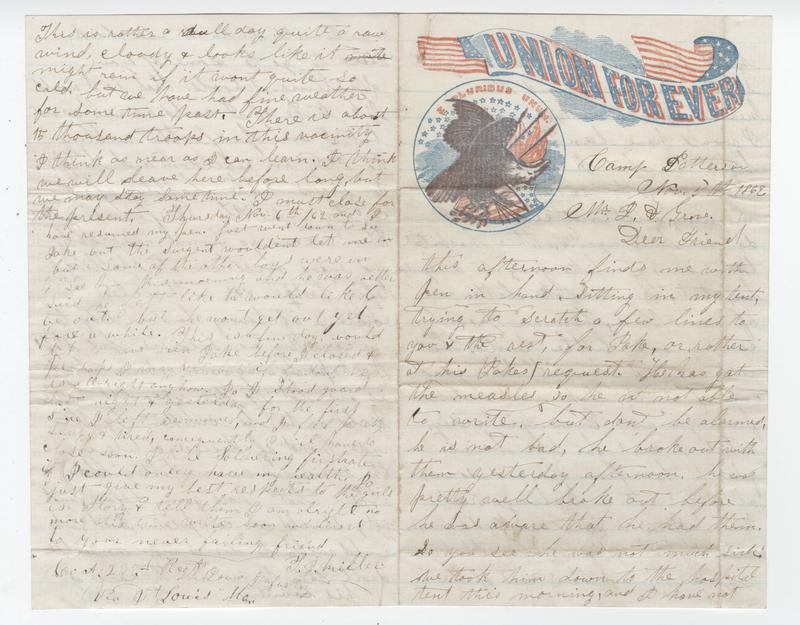 UNION FOR EVER
E PLURIBUS UNUM
Camp Patterson
Nov. 5th 1862
Mr. J. D Grove.
Dear Friend
this afternoon finds me with
pen in hand, sitting in my tent,
trying to scratch a few lines to
you & the rest, for Jake, or rather
at his (Jakes) request. He has got
the measles so he is not able
to write, but dont be alarmed,
he is not bad, he broke out with
them yesterday afternoon. he was
pretty well broke out before
he was aware that he had them.
So you see he was not much sick.
we took him down to the hospital
tent this morning, and I have not
This is rather a dull day quite a raw
wind, cloudy & looks like it
might rain if it wont quite so
cold. but we have had fine weather
for some time past. There is about
15 thousand troops in this vacinity
I think as near as I can learn. I think
we will leave here before long, but
we may stay sometime. I must close for
the present. Thursday Nov. 6th /62 and I
have resumed my pen. Just went down to see
Jake but the surgent wouldent let me in
but some of the other boys were in
to see him this morning and he was better
said he felt like he would like to
be out. but he wont get out yet
for a while. This is a fine day. would
like to have seen Jake before I closed &
perhaps I may
all right anyhow. I stood guard
last night & yesterday for the first
since I left and I feel pretty
sleepy & tired, consequently I will have to
close soon. I like soldiering firstrate
if I could only have my health.
Just give my best respects to the girls
in Story & tell them I am alright no
more this time write soon and direct
to your never failing friend
Co. A. 23rd Regt J. J. Miller
Iowa
Via St Louis Mo.